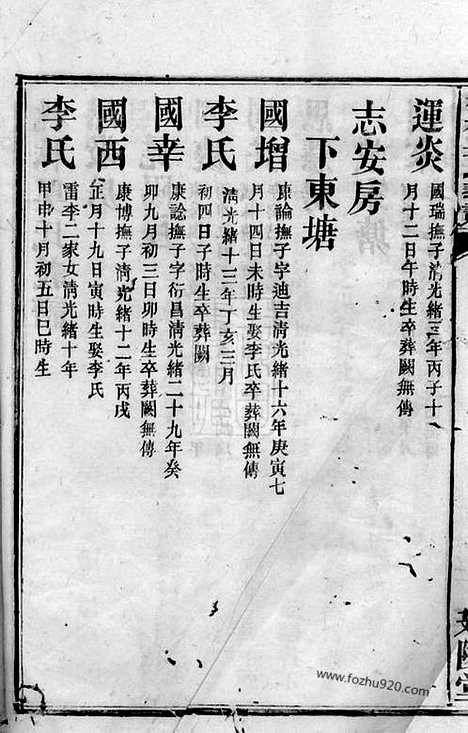 運炎
國瑞撫子清光緒二年丙子十
月十二日午時生卒葬闕無傳
志安房
下東塘
國增
康論撫子字迪吉清光緒十六年庚寅七
月十四日未時生娶李氏卒葬闕無傳
李氏
清光緒十三年丁亥三月
初四日子時生卒葬闕
國幸
康諗撫子字衍昌清光緒二十九年癸
卯九月初三日卯時生卒葬闕無傳
國西
康博撫子清光緒十二年丙戌
正月十九日寅時生娶李氏
李氏
雷李二家女清光緒十年
甲申十月初五日巳時生
www.fozhu920.com